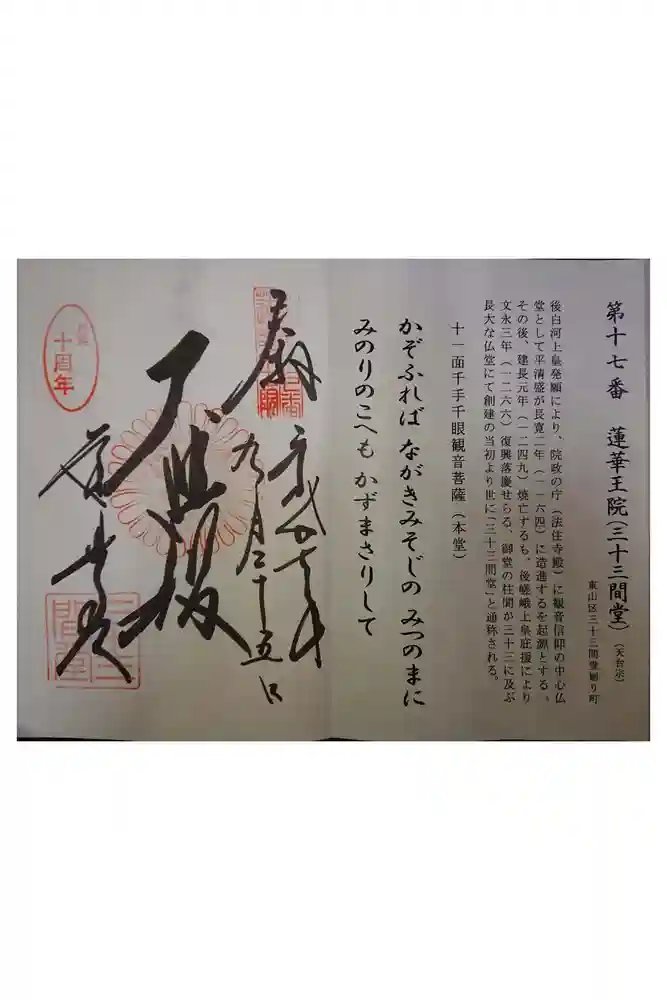 第十七番 蓮華王院(三十三間堂)(天台宗)
東山区三十三間堂廻り町
後白河上皇発願により、院政の庁(法住寺殿)に観音信仰の中心仏
堂として平清盛が長寛二年(一一六四)に造進するを起源とする。
その後、建長元年(一二四九)焼亡するも、後嵯峨上皇庇援により
文永三年(一二六六)復興落慶せらる、御堂の柱間が三十三に及ぶ
長大な仏堂にて創建の当初より世に「三十三間堂」と通称される。
十一面千手千眼観音菩薩(本堂)
かぞふれば ながきみそじの みつのまに
みのりのこへも かずまさりして
奉
九月二十五日
大悲殿
十周年
三十三間堂